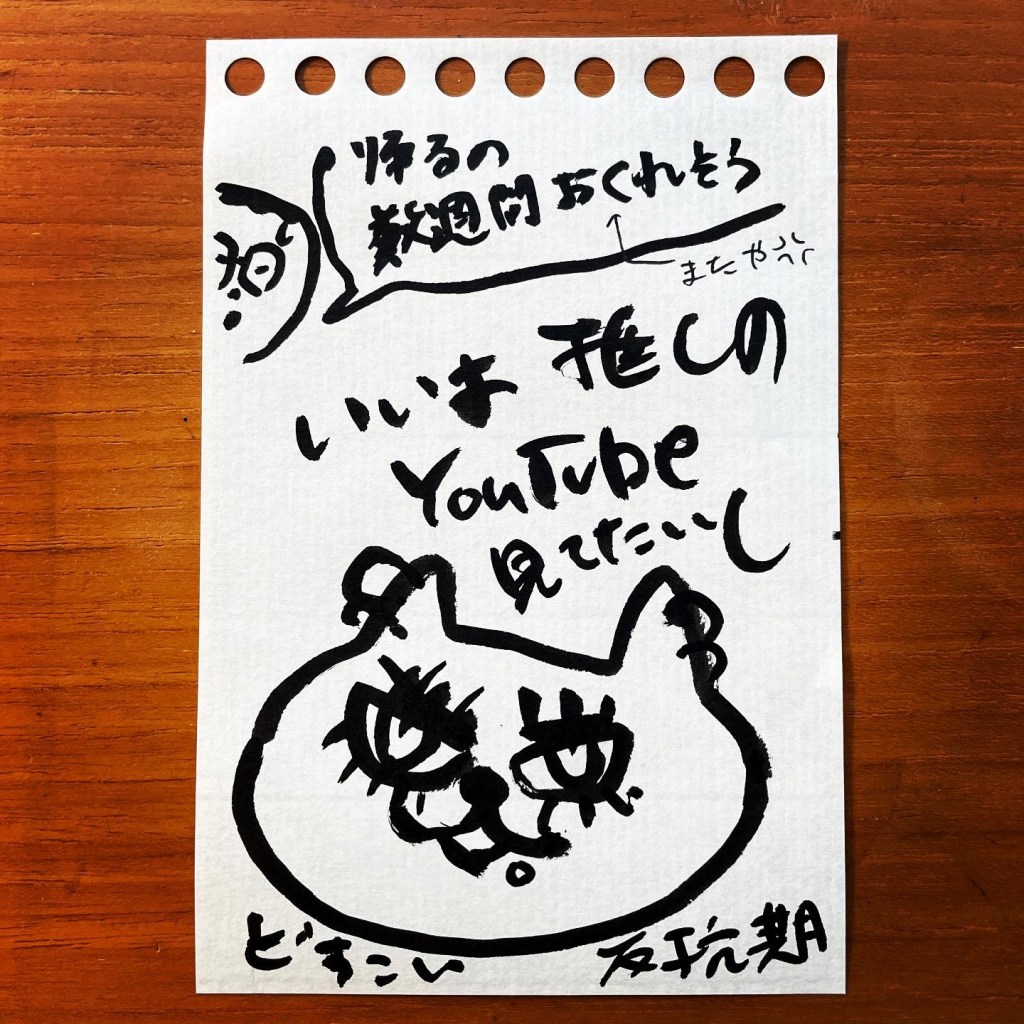 帰るの
数週間おくれそう
またや
いいよ 推しの
YouTube
見てたいし
どすこい
反抗期